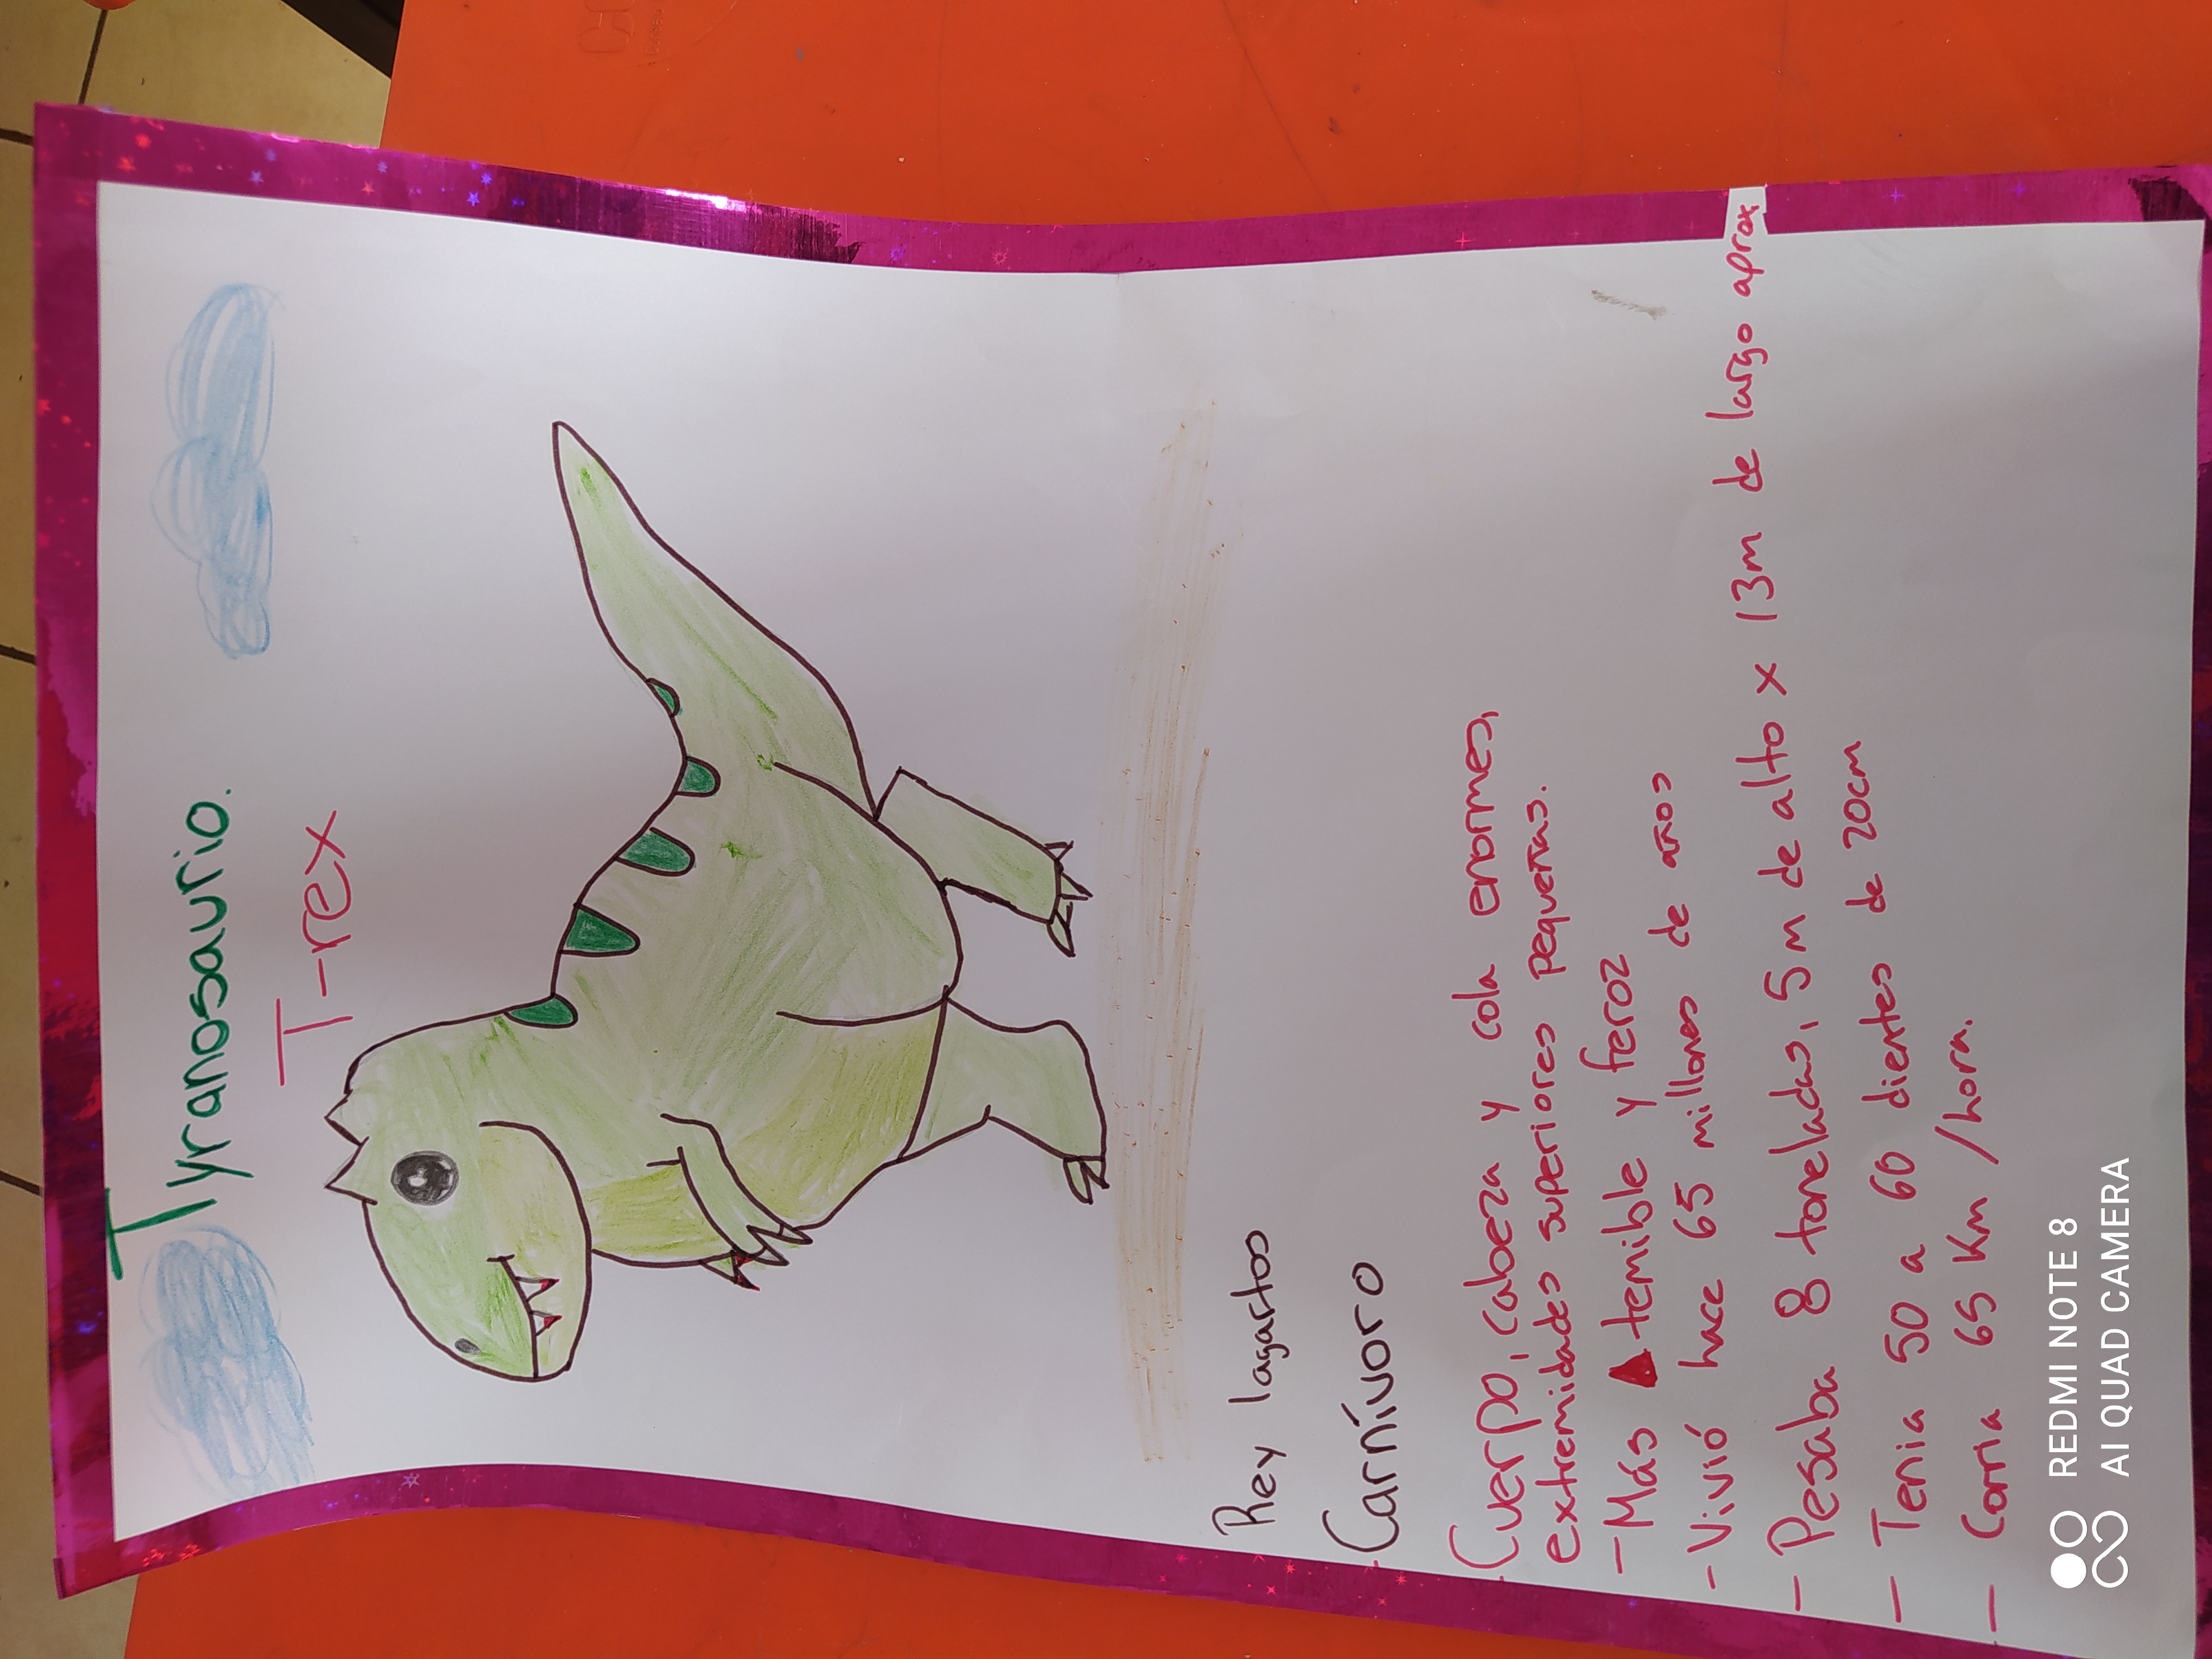 Tyranosaurio.
T-rex
Rey lagartos
-Carnívoro
-Cuerpo, cabeza y cola enormes,
extremidades superiores pequeñas.
- Más temible y feroz
- Vivió hace 65 millones de años
- Pesaba 8 toneladas, 5m de alto x 13m de largo aprox
- Tenia 50 a 60 dientes de 20cm
- Corria 65 Km/hora.
REDMI NOTE 8
AI QUAD CAMERA